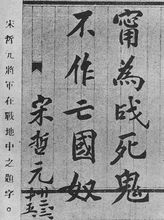 甯為战死鬼
不作亡國奴
宋哲元
宋哲元將軍在戰地中之題字。